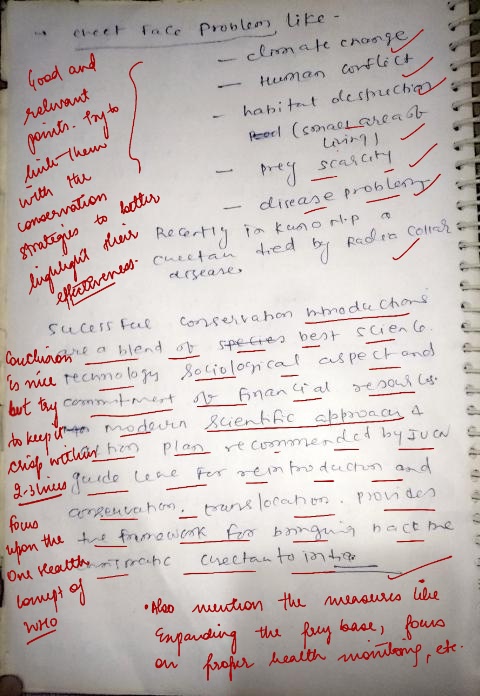 → cheet Face Problem like -
— climate change
— Human conflict
— habitat destruction
(small area of
living)
— prey scarcity
— disease problem
Recently in Kuno N.P a
cheetah died by Radio Collar
disease.
Good and
relevant
points. Try to
link them
with the
conservation
strategies to better
highlight their
effectiveness.
Sucessful conservation introductions
are a blend of species best science.
technology sociological aspect and
commitment of financial resources.
modern scientific approach &
action plan recommended by IUCN
guide line for reintroduction and
conservation. translocation. provides
the framework for bringing back the
cheetah to india
Conclusion
is nice
but try
to keep it
crisp within
2-3 lines
focus
upon the
One Health
Concept of
WHO
• Also mention the measures like
Expanding the prey base, focus
on proper health monitoring, etc.